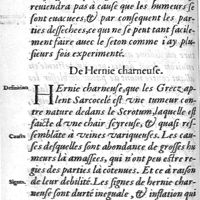 reuiendra pas à cause que les humeurs se
sont euacuees,& par consequent les par-
ties dessechees,ce qui ne se peut tant facile-
ment faire auec le seton comme i'ay plu-
sieurs fois experimenté.
De Hernie charneuse.
Definition.
HErnie charneuse,que les Grecz ap-
lent Sarcocelé est vne tumeur con-
tre nature dedans le Scrotum,laquelle est
faicte d'vne chair scyreuse, & quasi res-
semblāte à veines variqueuses. Les cau-
Causes
ses desquelles sont abondance de grosses hu
meurs là amassees, qui n'ont peu estre re-
gies des parties là cōtenues. Et ce à raison
de leur debilité. Les signes de hernie char-
Signes.
neuse sont durté ineguale, & inflation qui